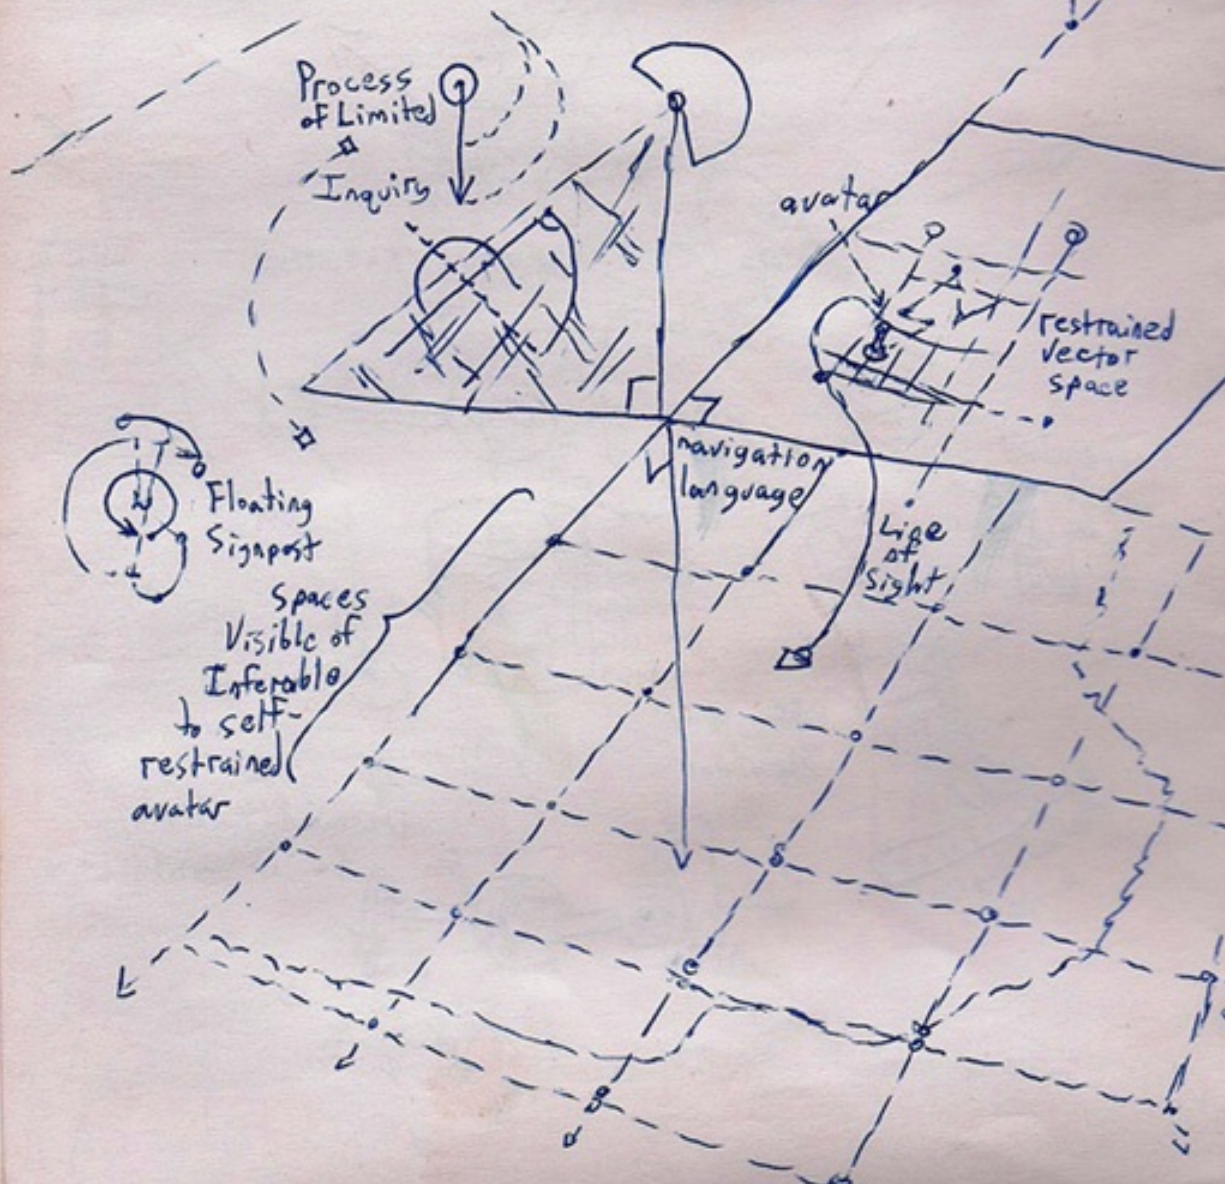 Process
of Limited
Inquiry
avatar
restrained
vector
space
navigation
language
Line
of
Sight
Floating
Signpost
Spaces
Visible of
Inferable
to self-
restrained
avatar